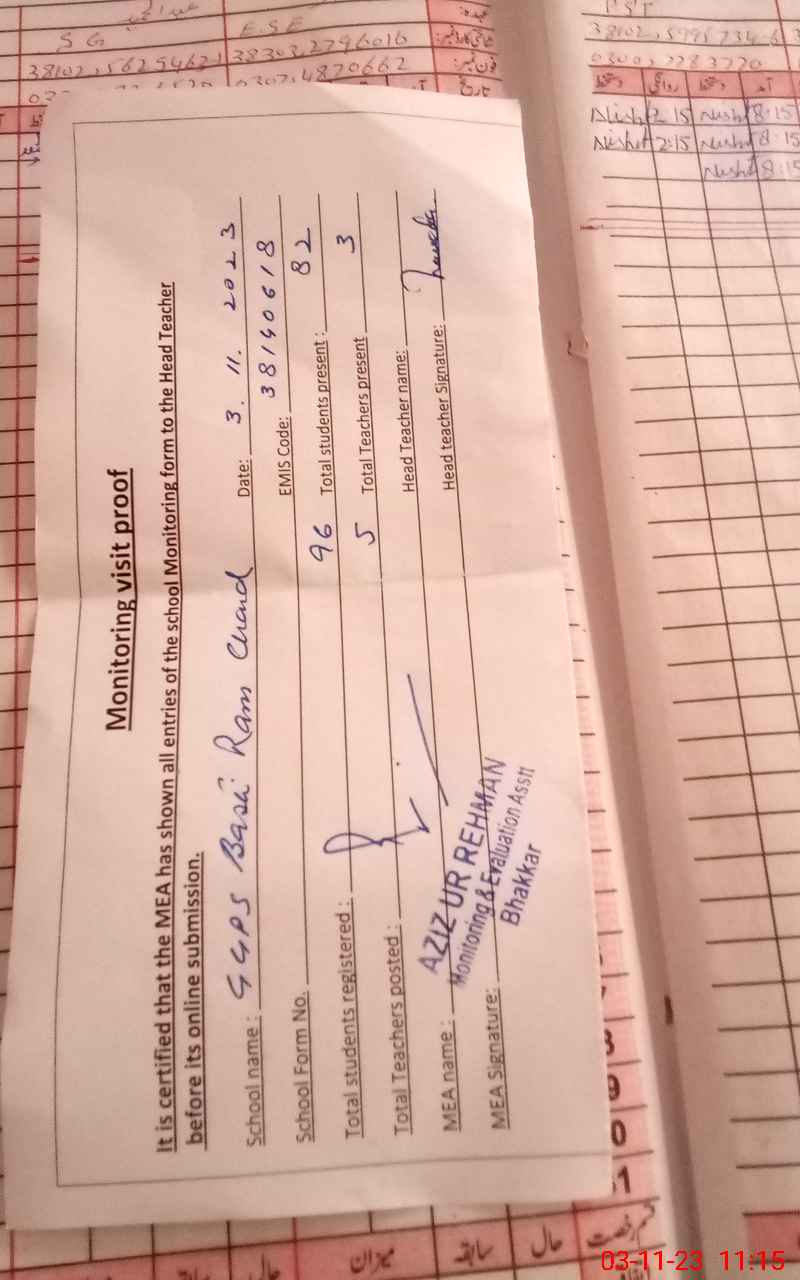 Monitoring visit proof
It is certified that the MEA has shown all entries of the school Monitoring form to the Head Teacher
before its online submission.
School name : GGPS Basti Ram Chand Date: 3. 11. 2023
School Form No. EMIS Code: 38140618
Total students registered : 96 Total students present : 82
Total Teachers posted : 5 Total Teachers present 3
MEA name : Head Teacher name:
MEA Signature: Head teacher Signature:
AZIZ UR REHMAN
Monitoring & Evaluation Asstt
Bhakkar
SG E.S.E
38303,2796016
0307,4870662
PST
دستخط روانگی دستخط آمد
2 15 8:15
2:15 8:15
8:15
قسم رخصت
حال سابقہ میزان
03-11-23 11:15